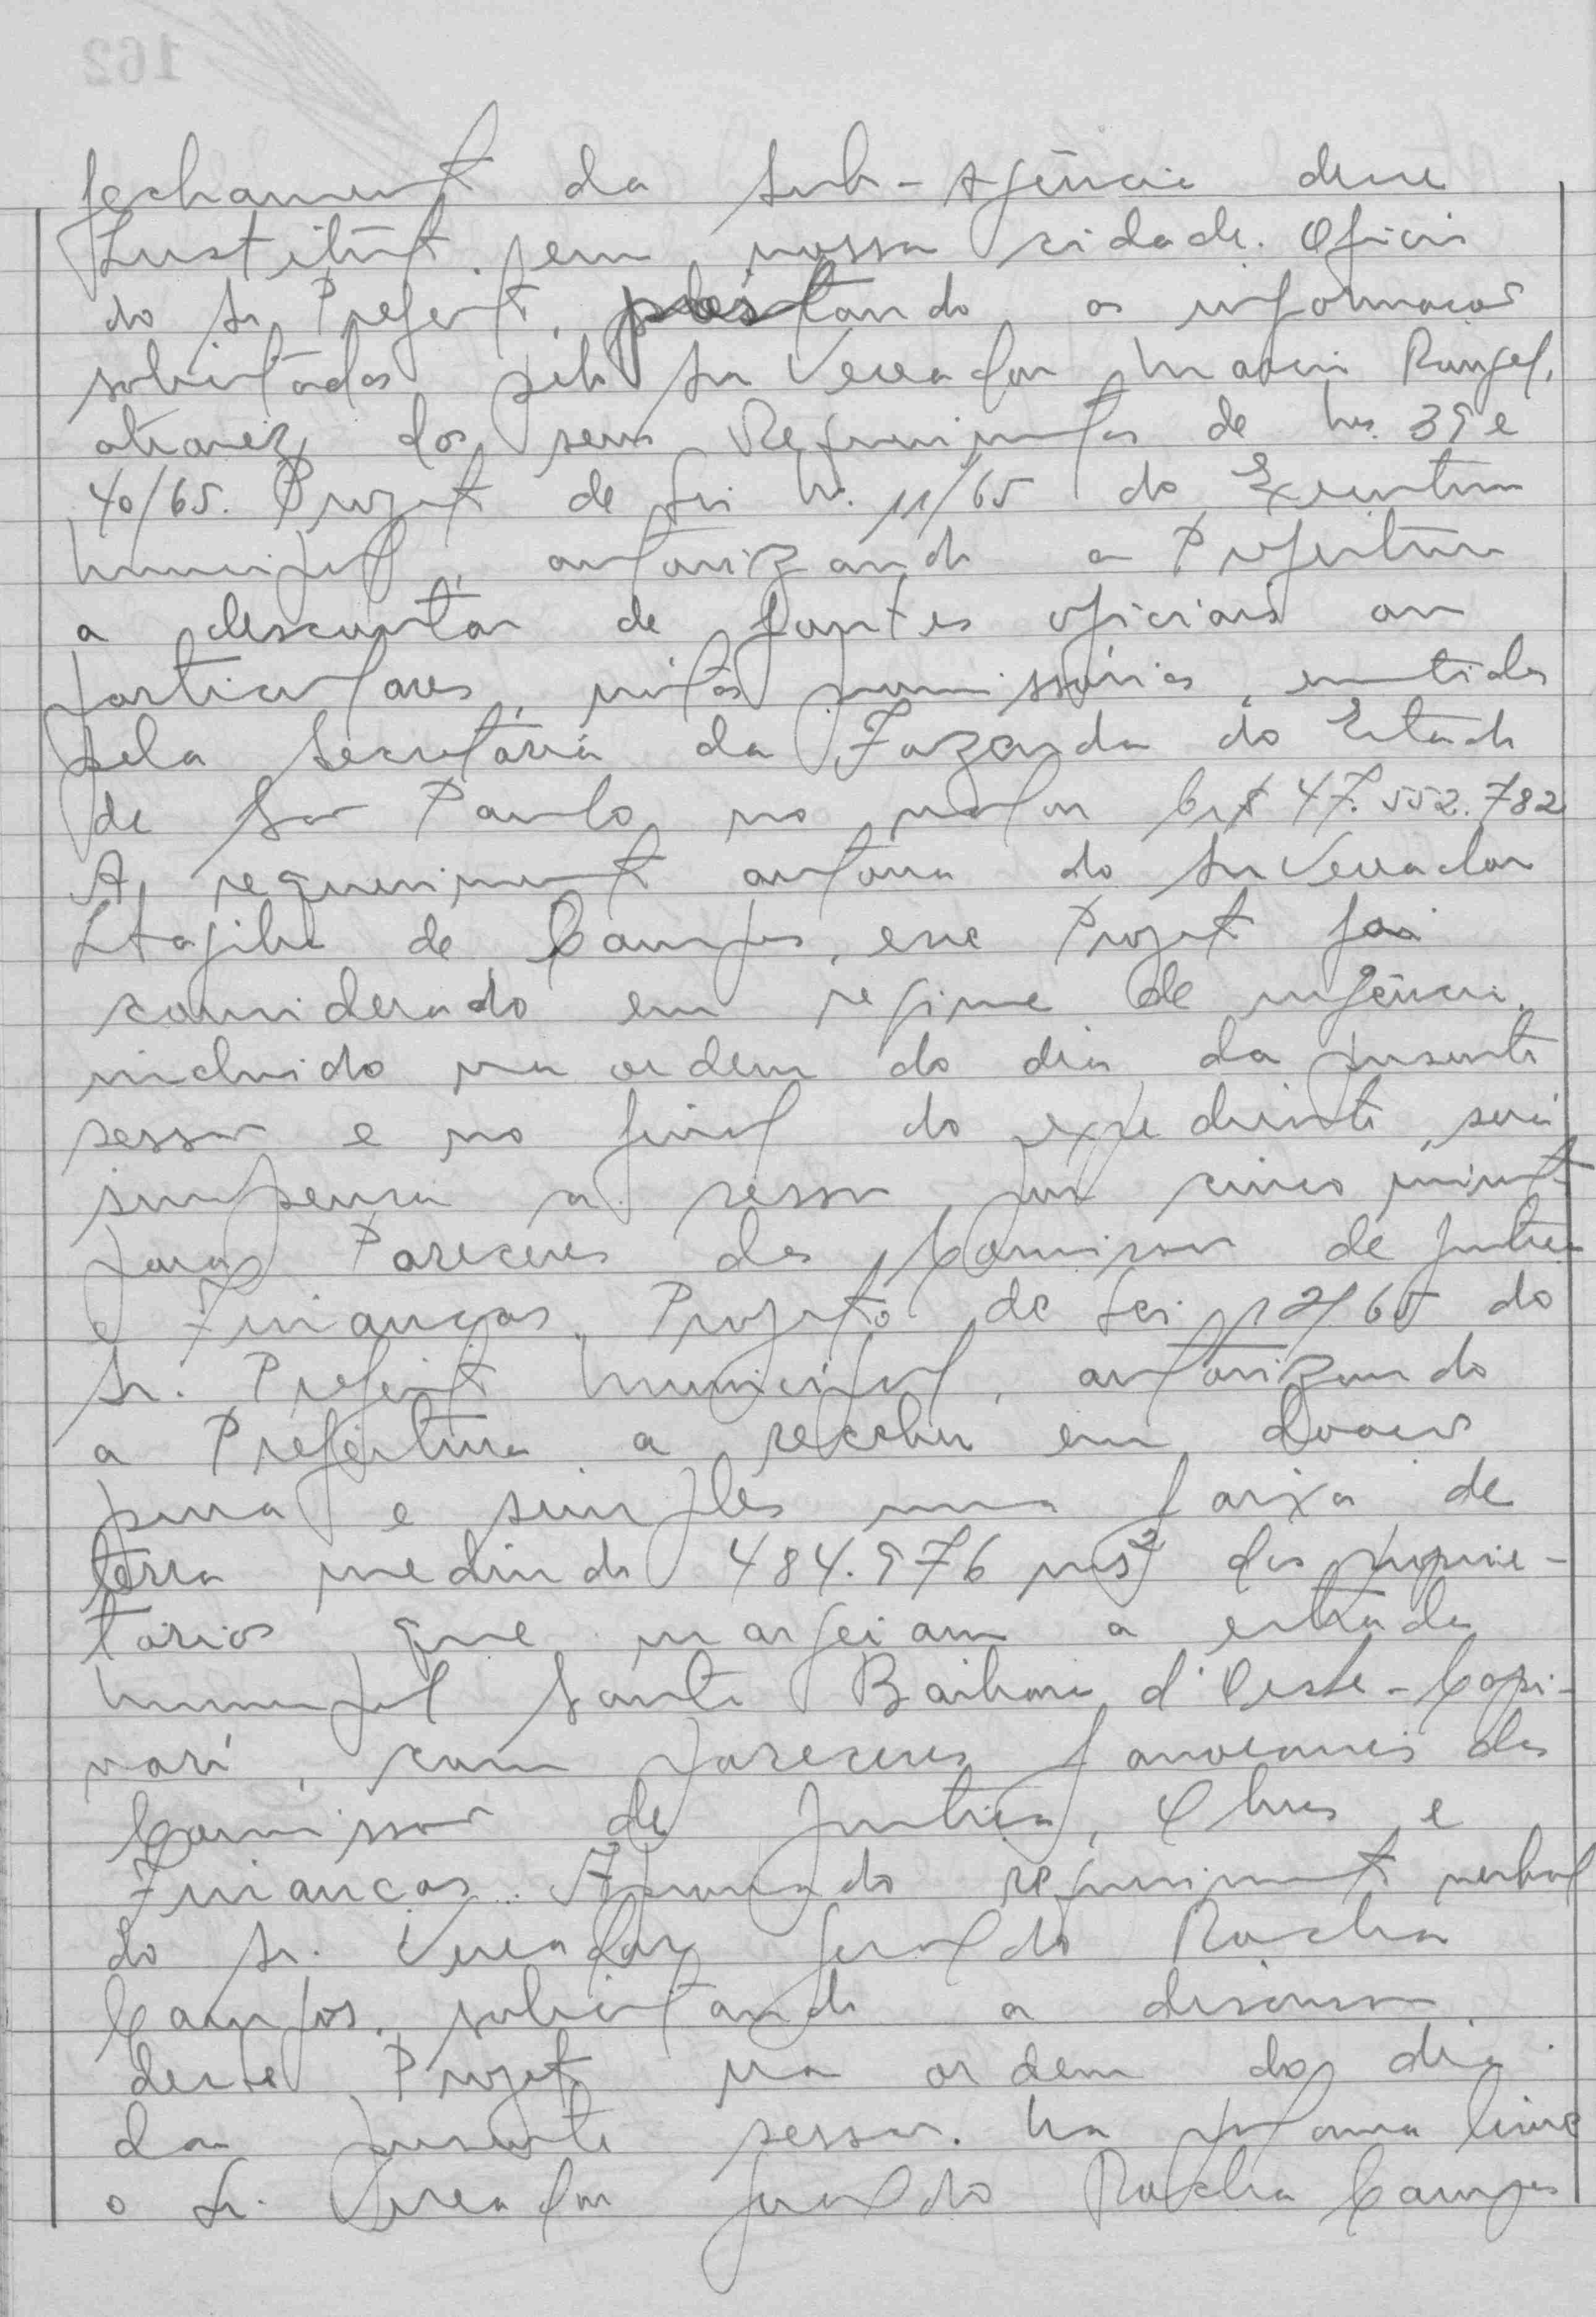 fechamento da Sub-Agência desse
Instituto, em nossa cidade. Oficio
do Sr. Prefeito, prestando as informações
solicitadas pelo Sr. Vereador Mario Rangel,
atravez dos seus Requerimentos de Nrs. 39 e
40/65. Projeto de Lei Nr. 11/65 do Executivo
Municipal, autorizando a Prefeitura
a descontar de fontes oficiais ou
particulares, notas promissórias, emitidas
pela Secretária da Fazenda do Estado
de São Paulo, no valor Cr$ 47.552.782
A requerimento autoria do Sr. Vereador
Itagiba de Campos, esse Projeto foi
considerado em regime de urgência,
incluido na ordem do dia da presente
sessão e no final do expediente, será
suspensa a sessão por cinco minutos
para Pareceres das Comissões de Justiça
e Finanças. Projeto de Lei 12/65 do
Sr. Prefeito Municipal, autorizando
a Prefeitura a receber em doação
pura e simples uma faixa de
terra medindo 484.976 ms2 dos proprie-
tários que margeiam a estrada
Municipal Santa Bárbara d'Oeste-Capi-
vari, com pareceres favoraveis das
Comissões de Justiça, Obras e
Finanças. Aprovado requerimento verbal
do Sr. Vereador Geraldo Rocha
Campos, solicitando a discussão
deste Projeto na ordem do dia
da presente sessão. Na palavra livre
o Sr. Vereador Geraldo Rocha Campos